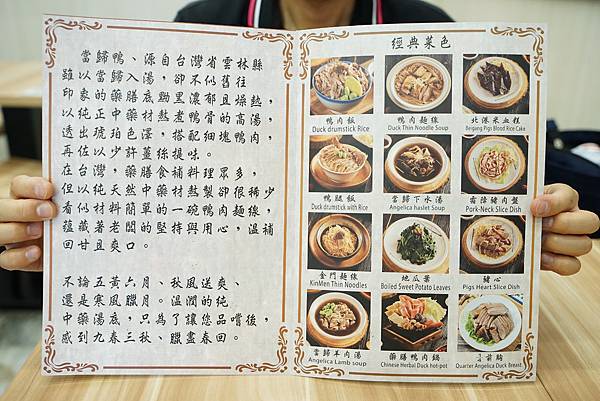 當歸鴨、源自台灣省雲林縣
雖以當歸入湯，卻不似舊往
印象的藥膳底黝黑濃郁且燥熱，
以純正中藥材熬煮鴨骨的高湯，
透出琥珀色澤，搭配細塊鴨肉，
再佐以少許薑絲提味。
在台灣，藥膳食補料理眾多，
但以純天然中藥材熬製卻很稀少
看似材料簡單的一碗鴨肉麵線，
蘊藏著老闆的堅持與用心，溫補
回甘且爽口。
不論五黃六月、秋風送爽、
還是寒風臘月。溫潤的純
中藥湯底，只為了讓您品嚐後，
感到九春三秋、臘盡春回。
經典菜色
鴨肉飯
Duck drumstick Rice
鴨肉麵線
Duck Thin Noodle Soup
北港米血糕
Beigang Pigs Blood Rice Cake
鴨腿飯
Duck drumstick with Rice
當歸下水湯
Angelica haslet Soup
霜降豬肉盤
Pork-Neck Slice Dish
金門麵線
KinMen Thin Noodles
地瓜葉
Boiled Sweet Potato Leaves
豬心
Pigs Heart Slice Dish
當歸羊肉湯
Angelica Lamb soup
藥膳鴨肉鍋
Chinese Herbal Duck hot-pot
前胸
Quarter Angelica Duck Breast